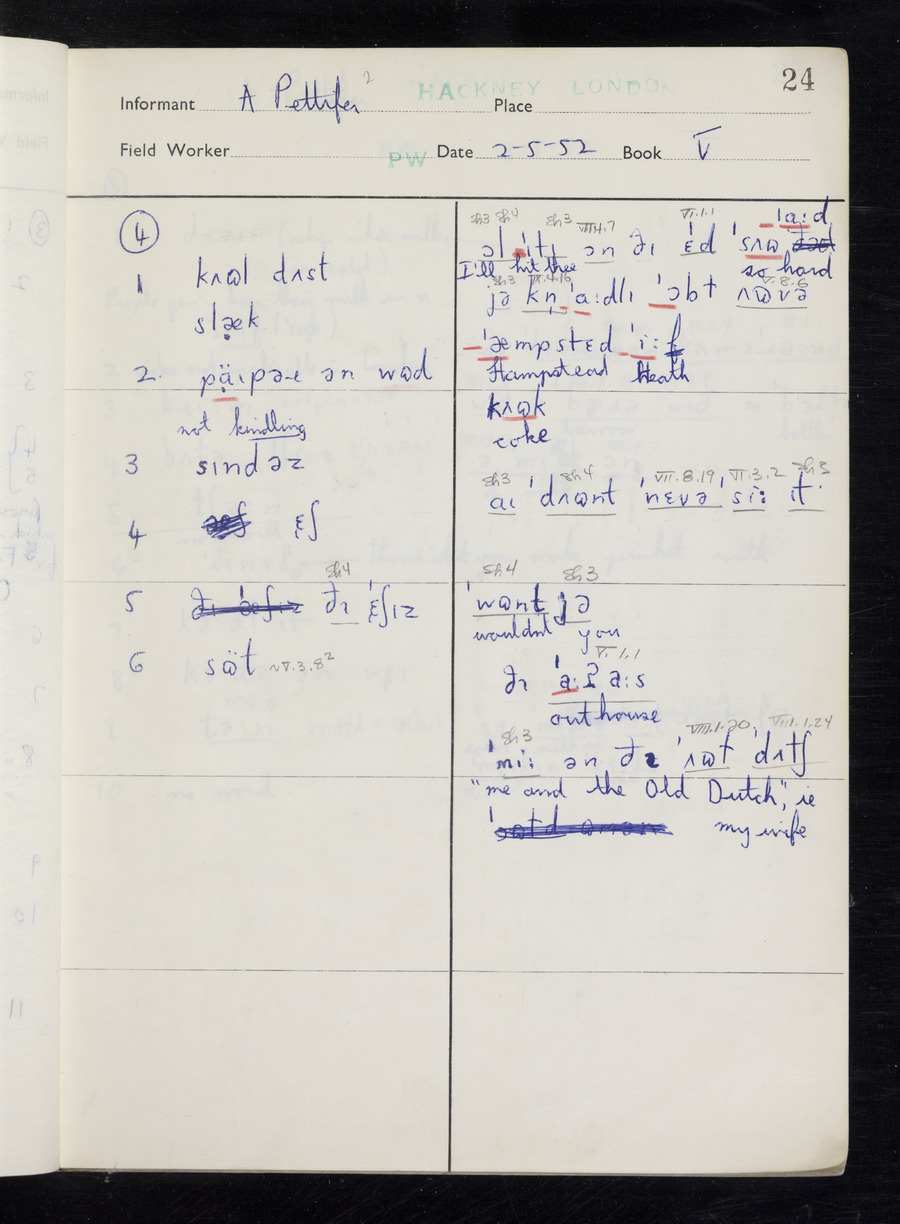 24
HACKNEY LONDON
Informant A Pettifer 2 Place
Field Worker PW Date 2-5-52 Book V
4
1 kʌɷl dʌst
slæk
2. päɪpəe ən wɷd
not kindling
3 sɪndəz
4 ɛʃ
5 sh4
ðɪ ˈɛʃɪz
6 sɷ̈t ~VI.3.8²
sh3 sh4 sh3 VIII.4.7 VI.1.1 ˈaːd
əl ˈɪt ən ðɪ ɛd ˈsʌɷ
I'll hit thee so hard
sh3 V.8.6
jə kn ˈaːdlɪ ˈəbt ʌɷvə
ˈæmpstɛd ˈiːf
Hampstead Heath
kʌɷk
coke
sh3 sh4 VII.8.19, VI.3.2 sh3
aɪ ˈdʌɷnt ˈnɛvə siː ɪt
sh4 sh3
ˈwɷnt jə
wouldn't you
VI.1.1
ðɪ ˈaːʔaːs
outhouse
sh3 VIII.1.20, VIII.1.24
ˈmiː ən ðɪ ˈʌɷt ˈdʌtʃ
"me and the Old Dutch", ie
my wife